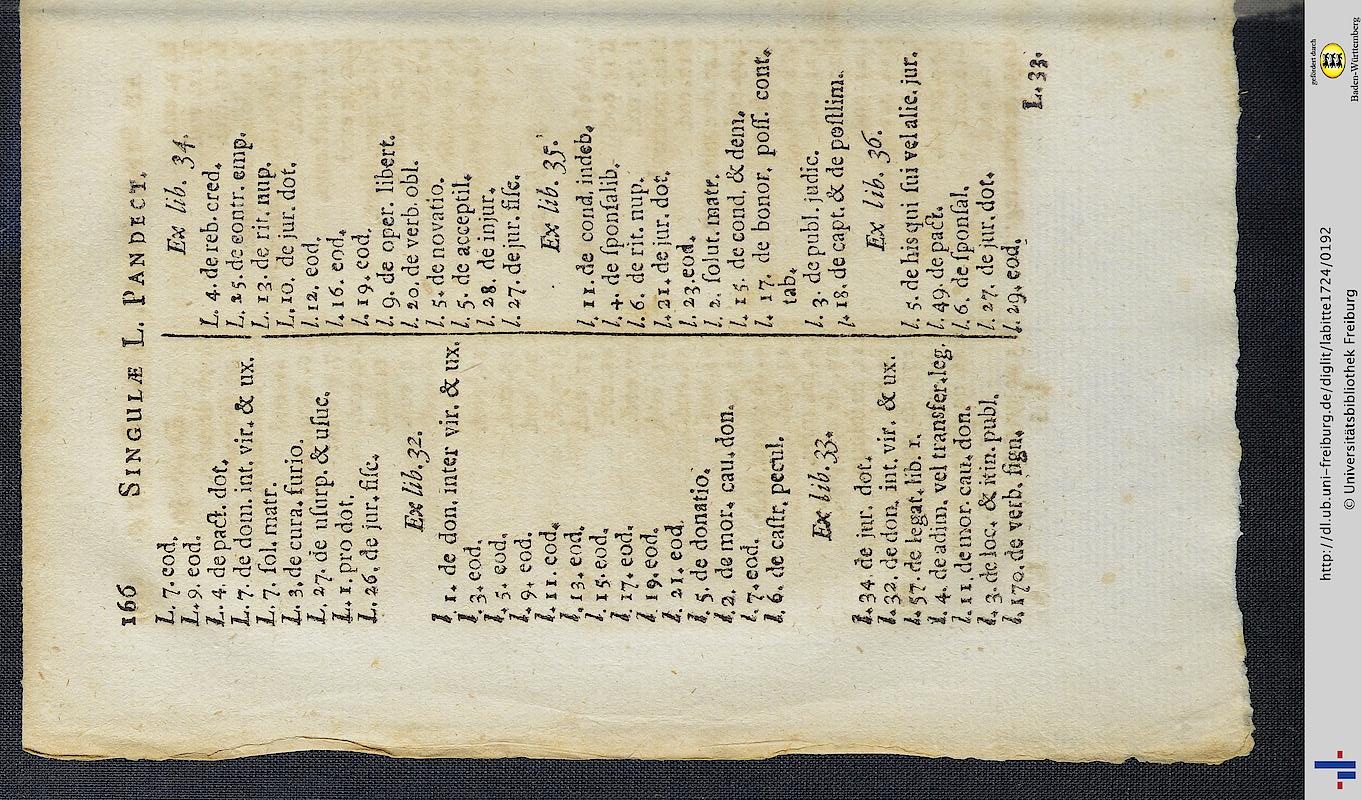 166 SINGULÆ L. PANDECT.
L. 7. eod.
L. 9. eod.
L. 4. de pact. dot.
L. 7. de dom. int. vir. & ux.
L. 7. ſol. matr.
L. 3. de cura. furio.
L. 27. de uſurp. & uſuc.
L. 1. pro dot.
L. 26. de jur. fiſc.
Ex lib. 32.
l. 1. de don. inter vir. & ux.
l. 3. eod.
l. 5. eod.
l. 9. eod.
l. 11. eod.
l. 13. eod.
l. 15. eod.
l. 17. eod.
l. 19. eod.
l. 21. eod.
l. 5. de donatio.
l. 2. de mor. cau. don.
l. 7. eod.
l. 6. de caſtr. pecul.
Ex lib. 33.
l. 34. de jur. dot.
l. 32. de don. int. vir. & ux.
l. 57. de legat. lib. 1.
l. 4. de adim. vel transfer. leg.
l. 11. de mor. cau. don.
l. 3. de loc. & itin. publ.
l. 170. de verb. ſign.
Ex lib. 34.
L. 4. de reb. cred.
L. 25. de contr. emp.
L. 13. de rit. nup.
L. 10. de jur. dot.
l. 12. eod.
l. 16. eod.
l. 19. eod.
l. 9. de oper. libert.
l. 20. de verb. obl.
l. 5. de novatio.
l. 5. de acceptil.
l. 28. de injur.
l. 27. de jur. fiſc.
Ex lib. 35.
l. 11. de cond. indeb.
l. 4. de ſponſalib.
l. 6. de rit. nup.
l. 21. de jur. dot.
l. 23. eod.
l. 2. ſolut. matr.
l. 15. de cond. & dem.
l. 17. de bonor. poſſ. cont.
tab.
l. 3. de publ. judic.
l. 18. de capt. & de poſtlim.
Ex lib. 36.
l. 5. de his qui ſui vel alie. jur.
l. 49. de pact.
l. 6. de ſponſal.
l. 27. de jur. dot.
l. 29. eod.
L. 33.
http://dl.ub.uni-freiburg.de/diglit/labitte1724/0192
© Universitätsbibliothek Freiburg
gefördert durch
Baden-Württemberg